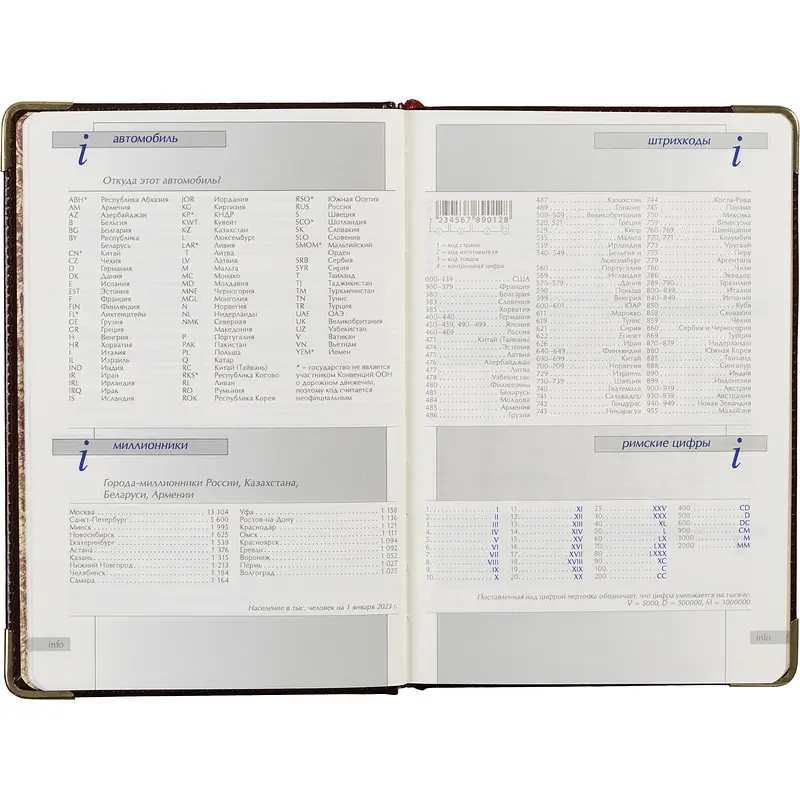 автомобиль
Откуда этот автомобиль?
ABH* Республика Абхазия
AM Армения
AZ Азербайджан
B Бельгия
BG Болгария
BY Республика
Беларусь
CN* Китай
CZ Чехия
D Германия
DK Дания
E Испания
EST Эстония
F Франция
FIN Финляндия
FL* Лихтенштейн
GE Грузия
GR Греция
H Венгрия
HR Хорватия
I Италия
IL Израиль
IND Индия
IR Иран
IRL Ирландия
IRQ Ирак
IS Исландия
JOR Иордания
KG Киргизия
KP* КНДР
KWT Кувейт
KZ Казахстан
L Люксембург
LAR* Ливия
LT Литва
LV Латвия
M Мальта
MC Монако
MD Молдавия
MNE Черногория
MGL Монголия
N Норвегия
NL Нидерланды
NMK Северная
Македония
P Португалия
PAK Пакистан
PL Польша
Q Катар
RC Китай (Тайвань)
RKS* Республика Косово
RL Ливан
RO Румыния
ROK Республика Корея
RSO* Южная Осетия
RUS Россия
S Швеция
SCO* Шотландия
SK Словакия
SLO Словения
SMOM* Мальтийский
Орден
SRB Сербия
SYR Сирия
T Таиланд
TJ Таджикистан
TM Туркменистан
TN Тунис
TR Турция
UAE ОАЭ
UK Великобритания
UZ Узбекистан
V Ватикан
VN Вьетнам
YEM* Йемен
* – государство не является
участником Конвенций ООН
о дорожном движении,
поэтому код считается
неофициальным
миллионники
Города-миллионники России, Казахстана,
Беларуси, Армении
Москва 13 104
Санкт-Петербург 5 600
Минск 1 995
Новосибирск 1 625
Екатеринбург 1 539
Астана 1 376
Казань 1 315
Нижний Новгород 1 213
Челябинск 1 184
Самара 1 164
Уфа 1 158
Ростов-на-Дону 1 136
Краснодар 1 121
Омск 1 111
Красноярск 1 094
Ереван 1 092
Воронеж 1 052
Пермь 1 027
Волгоград 1 025
Население в тыс. человек на 1 января 2023 г.
info
штрихкоды
1 234567 890128
1 – код страны
2 – код изготовителя
3 – код товара
4 – контрольная цифра
000–139 США
300–379 Франция
380 Болгария
383 Словения
385 Хорватия
400–440 Германия
450–459, 490–499 Япония
460–469 Россия
471 Китай (Тайвань)
474 Эстония
475 Латвия
476 Азербайджан
477 Литва
478 Узбекистан
480 Филиппины
481 Беларусь
484 Молдова
485 Армения
486 Грузия
487 Казахстан
489 Гонконг
500–509 Великобритания
520, 521 Греция
529 Кипр
535 Мальта
539 Ирландия
540–549 Бельгия и
Люксембург
560 Португалия
569 Исландия
570–579 Дания
590 Польша
599 Венгрия
600–601 ЮАР
611 Марокко
619 Тунис
621 Сирия
622 Египет
626 Иран
640–649 Финляндия
690–699 Китай
700–709 Норвегия
729 Израиль
730–739 Швеция
740 Гватемала
741 Сальвадор
742 Гондурас
743 Никарагуа
744 Коста-Рика
745 Панама
750 Мексика
759 Венесуэла
760–769 Швейцария
770, 771 Колумбия
773 Уругвай
775 Перу
779 Аргентина
780 Чили
786 Эквадор
789–790 Бразилия
800–839 Италия
840–849 Испания
850 Куба
858 Словакия
859 Чехия
860 Сербия и Черногория
869 Турция
870–879 Нидерланды
880 Южная Корея
885 Таиланд
888 Сингапур
890 Индия
899 Индонезия
900–919 Австрия
930–939 Австралия
940–949 Новая Зеландия
955 Малайзия
римские цифры
1 I
2 II
3 III
4 IV
5 V
6 VI
7 VII
8 VIII
9 IX
10 X
11 XI
12 XII
13 XIII
14 XIV
15 XV
16 XVI
17 XVII
18 XVIII
19 XIX
20 XX
25 XXV
30 XXX
40 XL
50 L
60 LX
70 LXX
80 LXXX
90 XC
100 C
200 CC
400 CD
500 D
600 DC
900 CM
1000 M
2000 MM
Поставленная над цифрой черточка обозначает, что цифра умножается на тысячу:
V̄ = 5000, D̄ = 500000, M̄ = 1000000
info